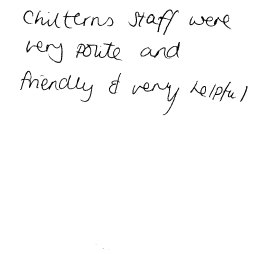 Chilterns staff were
very polite and
friendly & very helpful